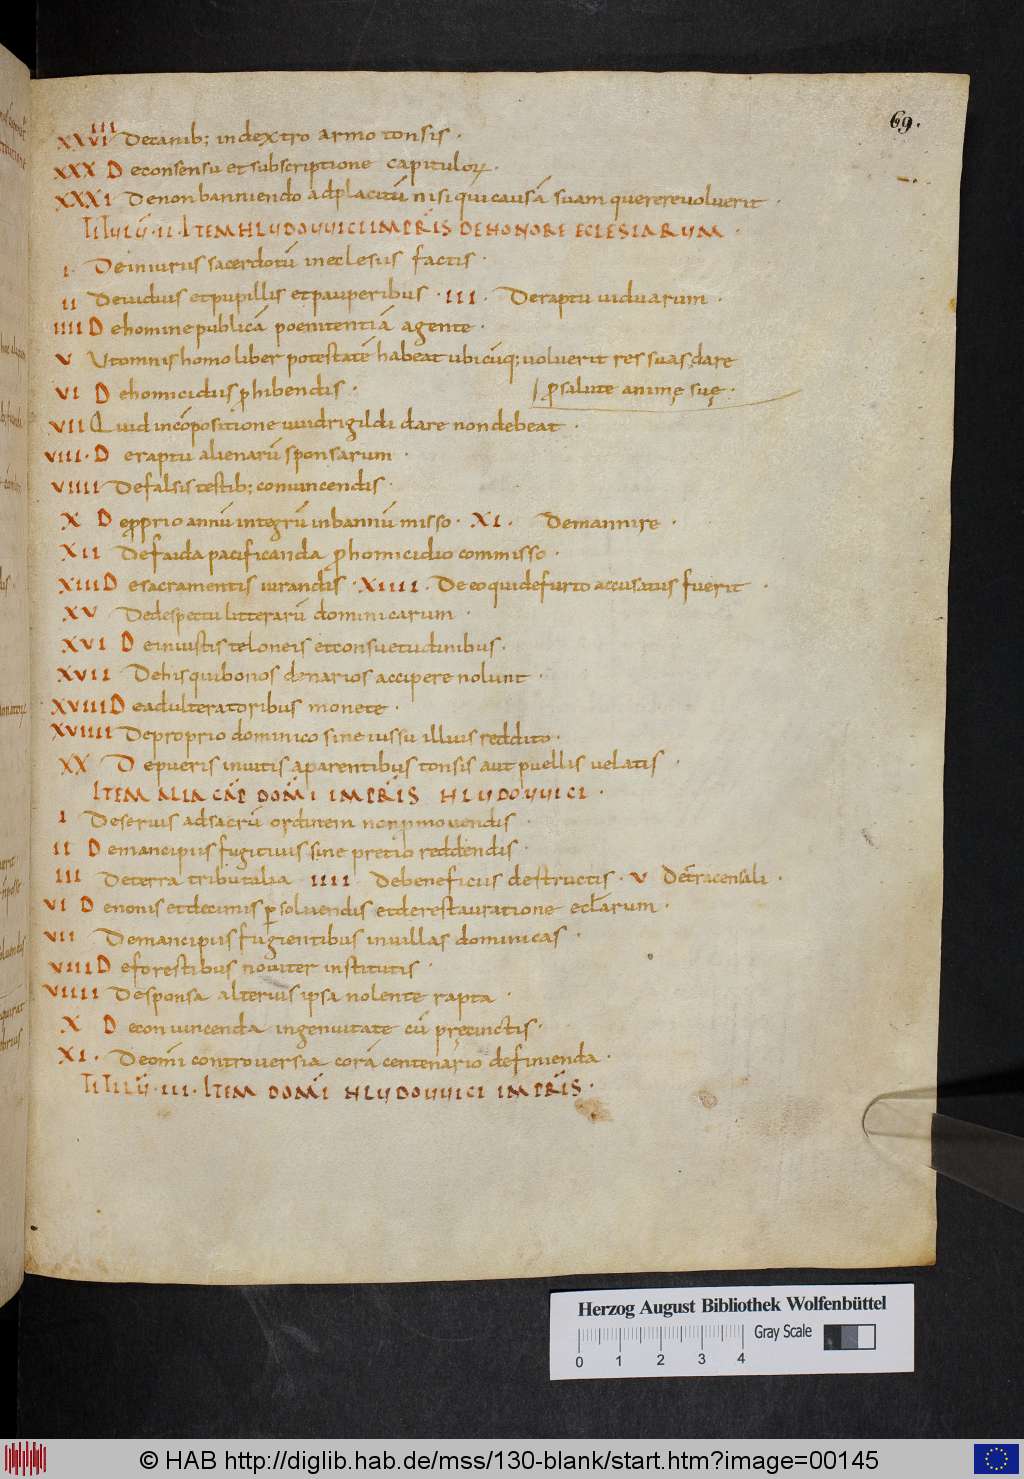 69.
XXVIIII Decanib; indextro armo tonsis .
XXX Deconsensu et subscriptione capituloꝝ.
XXXI Denon banniendo adplacitū nisi qui causā suam querere voluerit .
TITULŪ · II · ITEM HLUDOUUICI IMPRĪS DE HONORE ECLESIARUM .
I · Deiniuriis sacerdotū ineclesiis factis .
II Deviduis et pupillis et pauperibus · III . De raptu viduarum .
IIII Dehomine publicā poenitentiā agente .
V Ut omnis homo liber potestatē habeat ubicūq; voluerit res suas dare
VI Dehomicidiis ꝓhibendis . ꝓ salute animę suę .
VII Quid incōpositione uuidrigildi dare non debeat .
VIII · De raptu alienarū sponsarum .
VIIII De falsis testib; convincendis .
X Deꝓprio annū integrū inbannū misso · XI . De mannire .
XII De faida pacificanda ꝓ homicidio commisso .
XIII De sacramentis iurandis · XIIII . De eo qui defurto accusatus fuerit .
XV De despectu litterarū dominicarum .
XVI De iniustis teloneis et consuetudinibus .
XVII De his qui bonos denarios accipere nolunt .
XVIII De adulteratoribus monete .
XVIIII De proprio dominico sine iussu illius reddito .
XX De pueris invitis aparentibus tonsis aut puellis velatis .
ITEM ALIA CAP̄ DOM̄I IMPRĪS HLUDOUUICI .
I De servis ad sacrū ordinem non ꝓmovendis .
II De mancipiis fugitivis sine pretio reddendis .
III De terra tributalia IIII . De beneficiis destructis · V De t̄ra censali .
VI De nonis et decimis ꝑsolvendis et de restauratione ecl̄arum .
VII De mancipiis fugientibus in villas dominicas .
VIII De forestibus noviter institutis .
VIIII De sponsa alterius ipsa nolente rapta .
X De convincenda ingenuitate cū pręcinctis .
XI . De om̄i controversia corā centenario definienda .
TITULŪ · III · ITEM DOM̄I HLUDOUUICI IMPRĪS .
Herzog August Bibliothek Wolfenbüttel
0 1 2 3 4 Gray Scale
© HAB http://diglib.hab.de/mss/130-blank/start.htm?image=00145